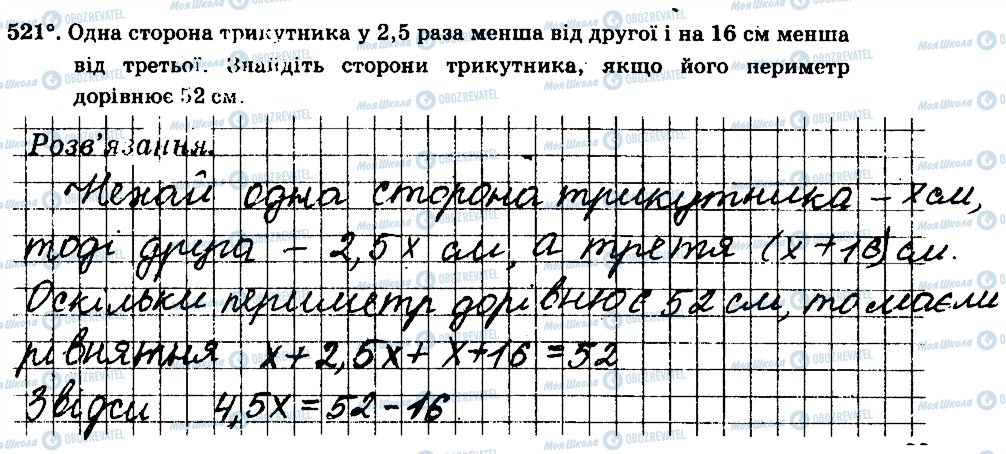 521°. Одна сторона трикутника у 2,5 раза менша від другої і на 16 см менша
від третьої. Знайдіть сторони трикутника, якщо його периметр
дорівнює 52 см.
Розв'язання.
Нехай одна сторона трикутника – x см,
тоді друга – 2,5x см, а третя (x+16) см.
Оскільки периметр дорівнює 52 см, то маєми
рівняння x+2,5x+x+16=52
Звідси 4,5x=52-16